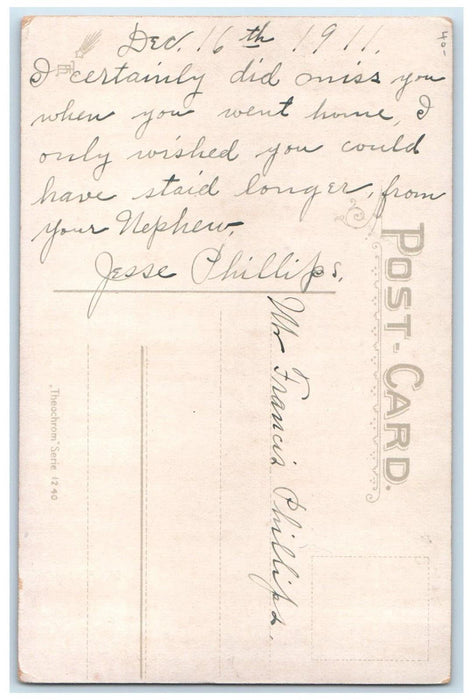 Dec. 16th 1911.
I certainly did miss you
when you went home, I
only wished you could
have staid longer, from
your Nephew,
Jesse Phillips.
Mr Francis Phillips.
POST-CARD.
„Theochrom" Serie 1240
40-